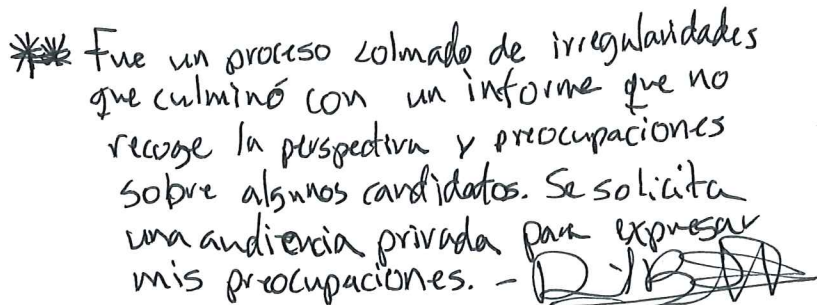 ** Fue un proceso colmado de irregularidades
que culminó con un informe que no
recoge la perspectiva y preocupaciones
sobre algunos candidatos. Se solicita
una audiencia privada para expresar
mis preocupaciones. -